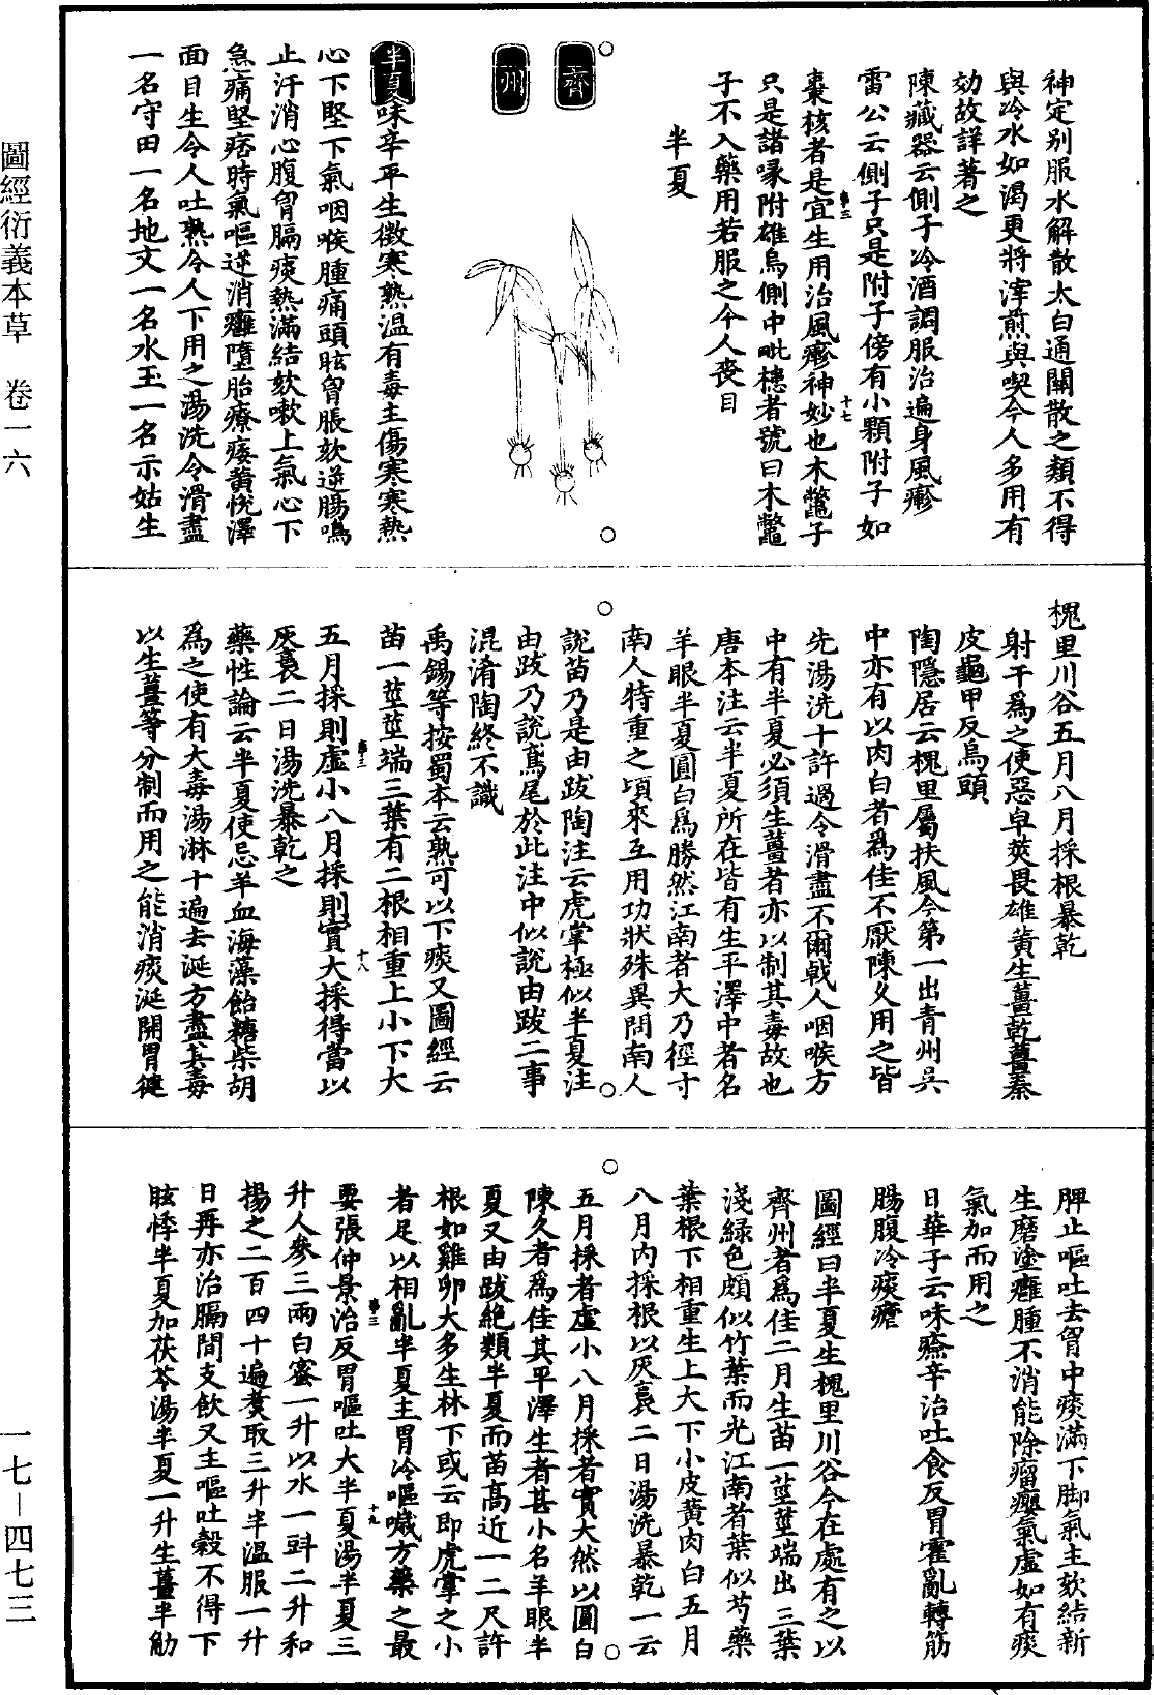 神定別服水解散太白通關散之類不得
與冷水如渴更將滓煎與喫今人多用有
効故詳著之
陳藏器云側子冷酒調服治遍身風瘮
雷公云側子只是附子傍有小顆附子如
棗核者是宜生用治風瘮神妙也木鼈子
只是諸喙附雄烏側中毗槵者號曰木鼈
子不入藥用若服之令人喪目
半夏
齊
州
半夏味辛平生微寒熟溫有毒主傷寒寒熱
心下堅下氣咽喉腫痛頭眩胷脹欬逆腸鳴
止汗消心腹胷膈痰熱滿結欬嗽上氣心下
急痛堅痞時氣嘔逆消癰腫墮胎療痿黃悅澤
面目生令人吐熟令人下用之湯洗令滑盡
一名守田一名地文一名水玉一名示姑生
槐里川谷五月八月採根暴乾
射干為之使惡皁莢畏雄黃生薑乾薑秦
皮龜甲反烏頭
陶隱居云槐里屬扶風今第一出青州吳
中亦有以肉白者為佳不厭陳久用之皆
先湯洗十許過令滑盡不爾戟人咽喉方
中有半夏必須生薑者亦以制其毒故也
唐本注云半夏所在皆有生平澤中者名
羊眼半夏圓白為勝然江南者大乃徑寸
南人特重之頃來互用功狀殊異問南人
說苗乃是由跋陶注云虎掌極似半夏注
由跋乃說鳶尾於此注中似說由跋二事
混淆陶終不識
禹錫等按蜀本云熟可以下痰又圖經云
苗一莖莖端三葉有二根相重上小下大
五月採則虛小八月採則實大採得當以
灰裛二日湯洗暴乾之
藥性論云半夏使忌羊血海藻飴糖柴胡
為之使有大毒湯淋十遍去涎方盡其毒
以生薑等分制而用之能消痰涎開胃健
脾止嘔吐去胷中痰滿下脚氣主欬結新
生磨塗癰腫不消能除瘤癭氣虛如有痰
氣加而用之
日華子云味㾕辛治吐食反胃霍亂轉筋
腸腹冷痰瘧
圖經曰半夏生槐里川谷今在處有之以
齊州者為佳二月生苗一莖莖端出三葉
淺綠色頗似竹葉而光江南者葉似芍藥
葉根下相重生上大下小皮黃肉白五月
八月內採根以灰裛二日湯洗暴乾一云
五月採者虛小八月採者實大然以圓白
陳久者為佳其平澤生者甚小名羊眼半
夏又由跋絕類半夏而苗高近一二尺許
根如雞卵大多生林下或云即虎掌之小
者足以相亂半夏主胃冷嘔噦方藥之最
要張仲景治反胃嘔吐大半夏湯半夏三
升人參三兩白蜜一升以水一㪷二升和
揚之二百四十遍煑取三升半溫服一升
日再亦治膈間支飲又主嘔吐穀不得下
眩悸半夏加茯苓湯半夏一升生薑半觔
十七
十八
十九
圖經衍義本草 卷一六
一七－四七三